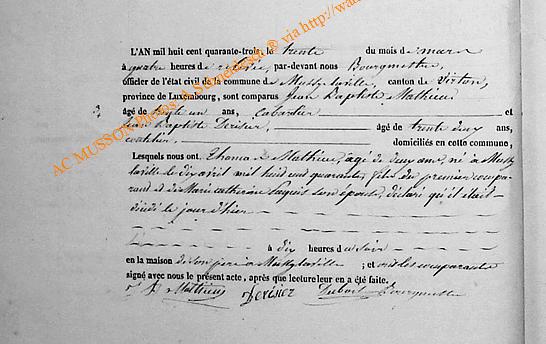 L'AN mil huit cent quarante-trois, le trente du mois de mars
à quatre heures de relevée, par-devant nous Bourgmestre,
officier de l'état civil de la commune de Mussy-la-ville, canton de Virton,
province de Luxembourg, sont comparus Jean Baptiste Mathieu
âgé de ans, Cabartier et
Jean Baptiste Derisier, âgé de trente deux ans,
domiciliés en cette commune,
Lesquels nous ont. Thomas Mathieu, agé de deux ans, né à Mussy
laville le dix avril mil huit cent quarante, fils du premier compa-
rant et de Marie catherine son épouse, déclaré qu'il était
décédé le jour d'hier
à dix heures du soir
en la maison de son père à Mussylaville ; et ont les comparants
signé avec nous le présent acte, après que lecture leur en a été faite.
J B Mathieu Derisier Bourgmestre
AC MUSSON Photos: A. ® via http://wa